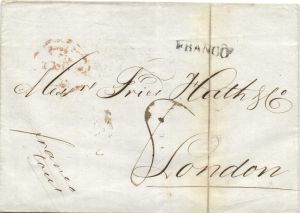 FRANCO
Messrs Fredk Huth & Co
8
London
franco
tout